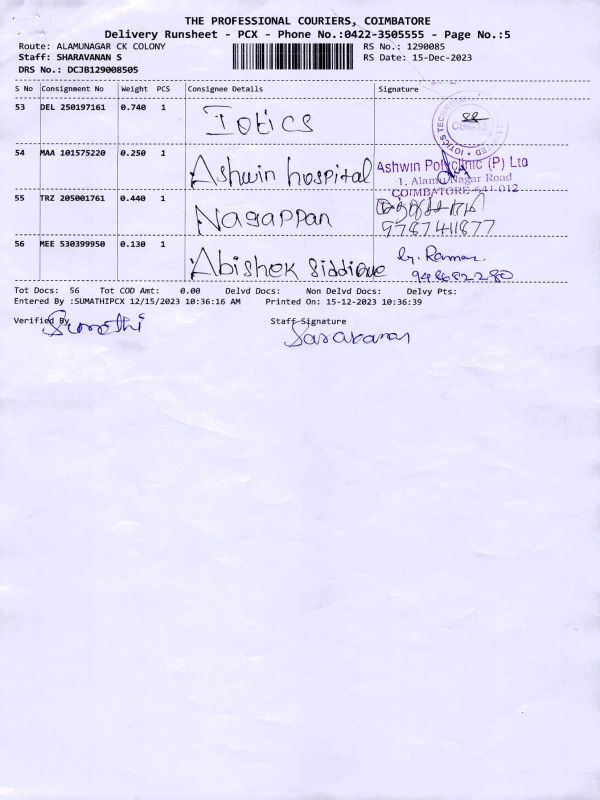 THE PROFESSIONAL COURIERS, COIMBATORE
Delivery Runsheet - PCX - Phone No.:0422-3505555 - Page No.:5
Route: ALAMUNAGAR CK COLONY RS No.: 1290085
Staff: SHARAVANAN S RS Date: 15-Dec-2023
DRS No.: DCJB129008505
S No Consignment No Weight PCS Consignee Details Signature
53 DEL 250197161 0.740 1 Iotics
54 MAA 101575220 0.250 1 Ashwin hospital
Ashwin Polyclinic (P) Ltd
1, Alamu Nagar Road
COIMBATORE-641 012
55 TRZ 205001761 0.440 1 Nagappan
9787411877
56 MEE 530399950 0.130 1 Abishek Siddique
Tot Docs: 56 Tot COD Amt: 0.00 Delvd Docs: Non Delvd Docs: Delvy Pts:
Entered By :SUMATHIPCX 12/15/2023 10:36:16 AM Printed On: 15-12-2023 10:36:39
Verified By Staff Signature
Sumathi Saravanan